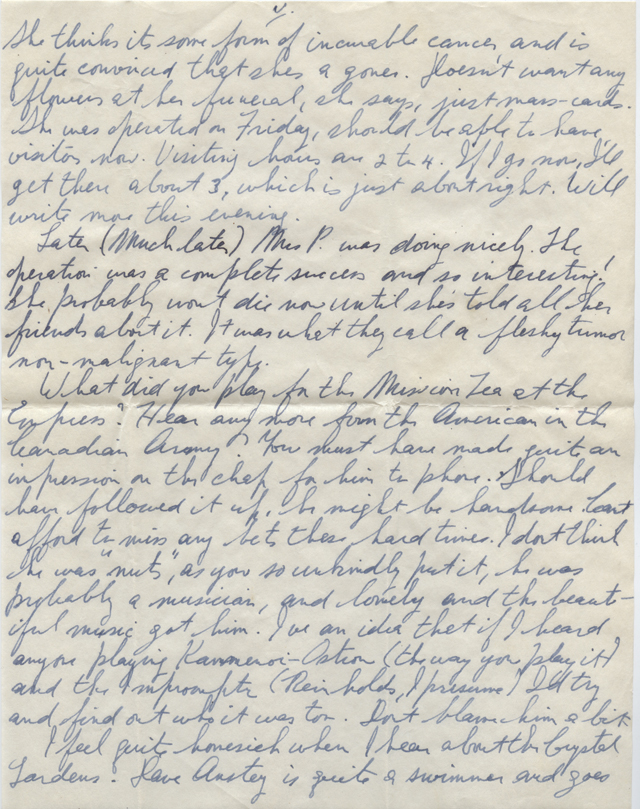 v.
She thinks its some form of incurable cancer and is
quite convinced that she's a goner. Doesn't want any
flowers at her funeral, she says, just mass-cards.
She was operated on Friday, should be able to have
visitors now. Visiting hours are 2 to 4. If I go now, I'll
get there about 3, which is just about right. Will
write more this evening.
Later (Much later) Mrs P. was doing nicely. The
operation was a complete success and so interesting!
She probably won't die now until she's told all her
friends about it. It was what they call a fleshy tumor
non-malignant type.
What did you play for the Mission Tea at the
Empress? Hear any more from the American in the
Canadian Army? You must have made quite an
impression on the chap for him to phone. Should
have followed it up, he might be handsome. Can't
afford to miss any bets these hard times. I don't think
he was "nuts", as you so unkindly put it, he was
probably a musician, and lonely and the beaut-
iful music got him. I've an idea that if I heard
anyone playing Kammenoi-Ostrow (the way you play it)
and the Impromptu (Reinholds, I presume) I'd try
and find out who it was too. Don't blame him a bit.
I feel quite homesick when I hear about the Crystal
Gardens. Dave Anstey is quite a swimmer and goes